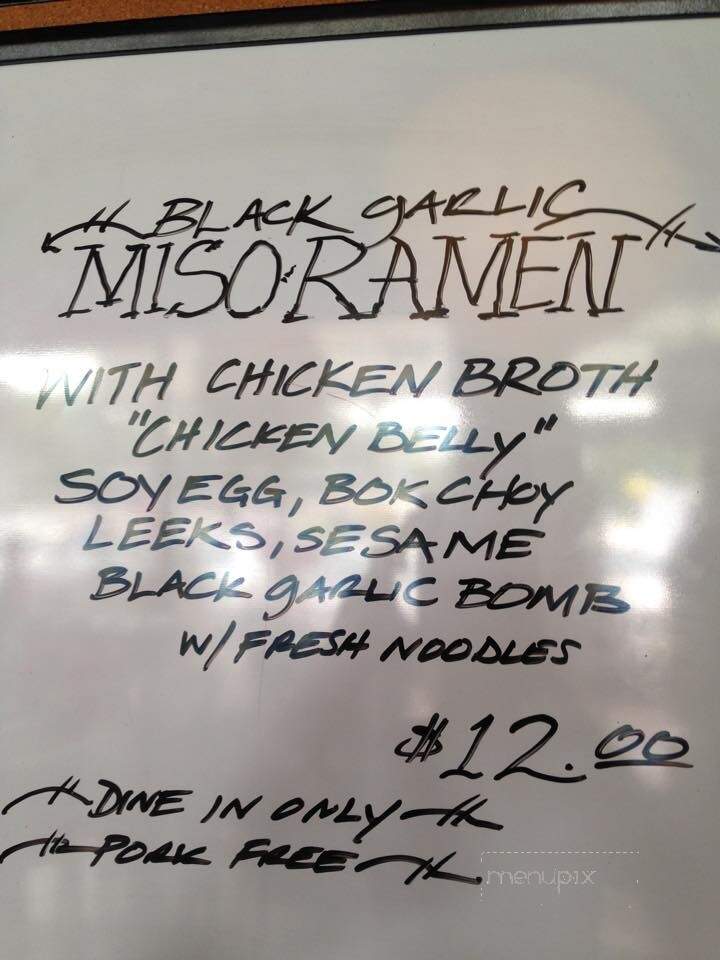 BLACK GARLIC
MISO RAMEN
WITH CHICKEN BROTH
"CHICKEN BELLY"
SOY EGG, BOK CHOY
LEEKS, SESAME
BLACK GARLIC BOMB
W/ FRESH NOODLES
$12.00
DINE IN ONLY
PORK FREE
menupix